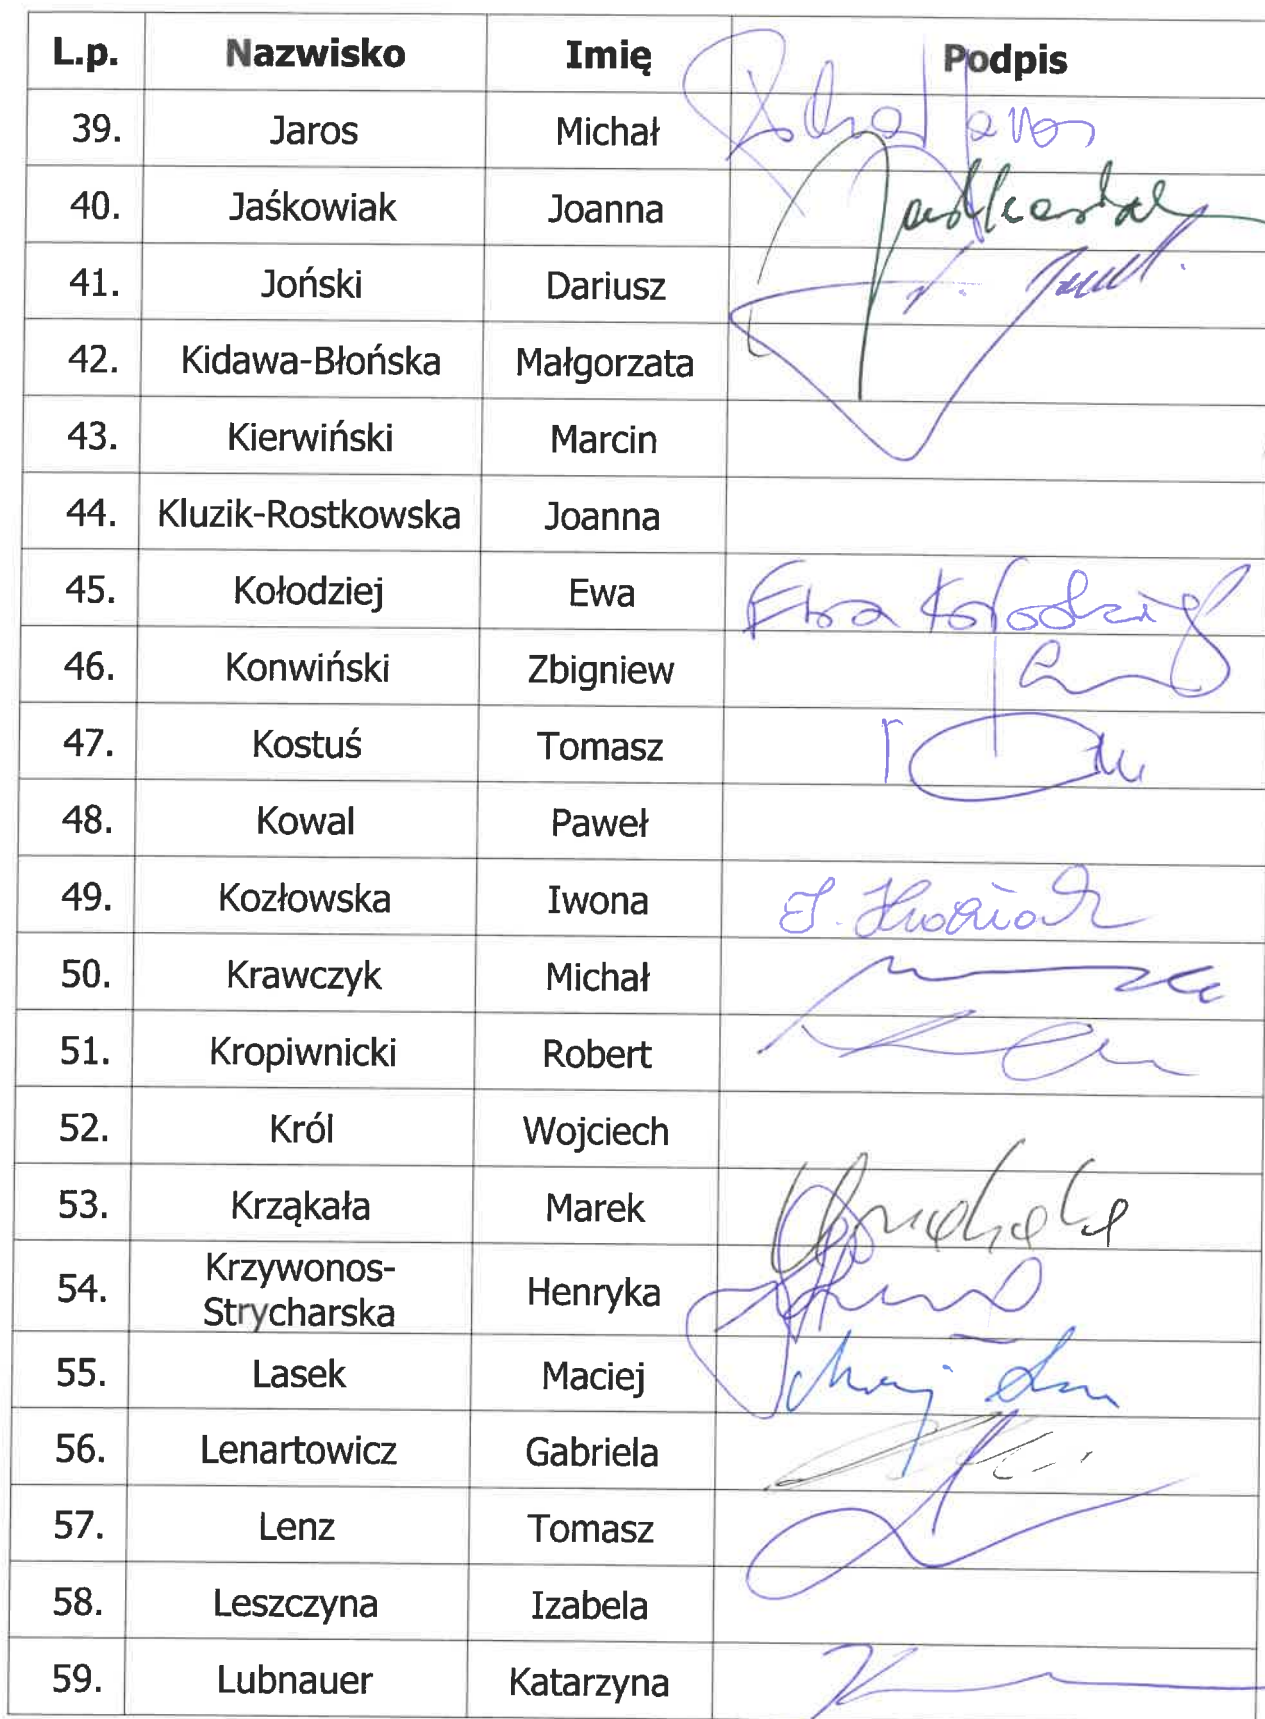 L.p. Nazwisko Imię Podpis
39. Jaros Michał
40. Jaśkowiak Joanna
41. Joński Dariusz
42. Kidawa-Błońska Małgorzata
43. Kierwiński Marcin
44. Kluzik-Rostkowska Joanna
45. Kołodziej Ewa Ewa Kołodziej
46. Konwiński Zbigniew
47. Kostuś Tomasz
48. Kowal Paweł
49. Kozłowska Iwona
50. Krawczyk Michał
51. Kropiwnicki Robert
52. Król Wojciech
53. Krząkała Marek
54. Krzywonos-
Strycharska Henryka
55. Lasek Maciej
56. Lenartowicz Gabriela
57. Lenz Tomasz
58. Leszczyna Izabela
59. Lubnauer Katarzyna